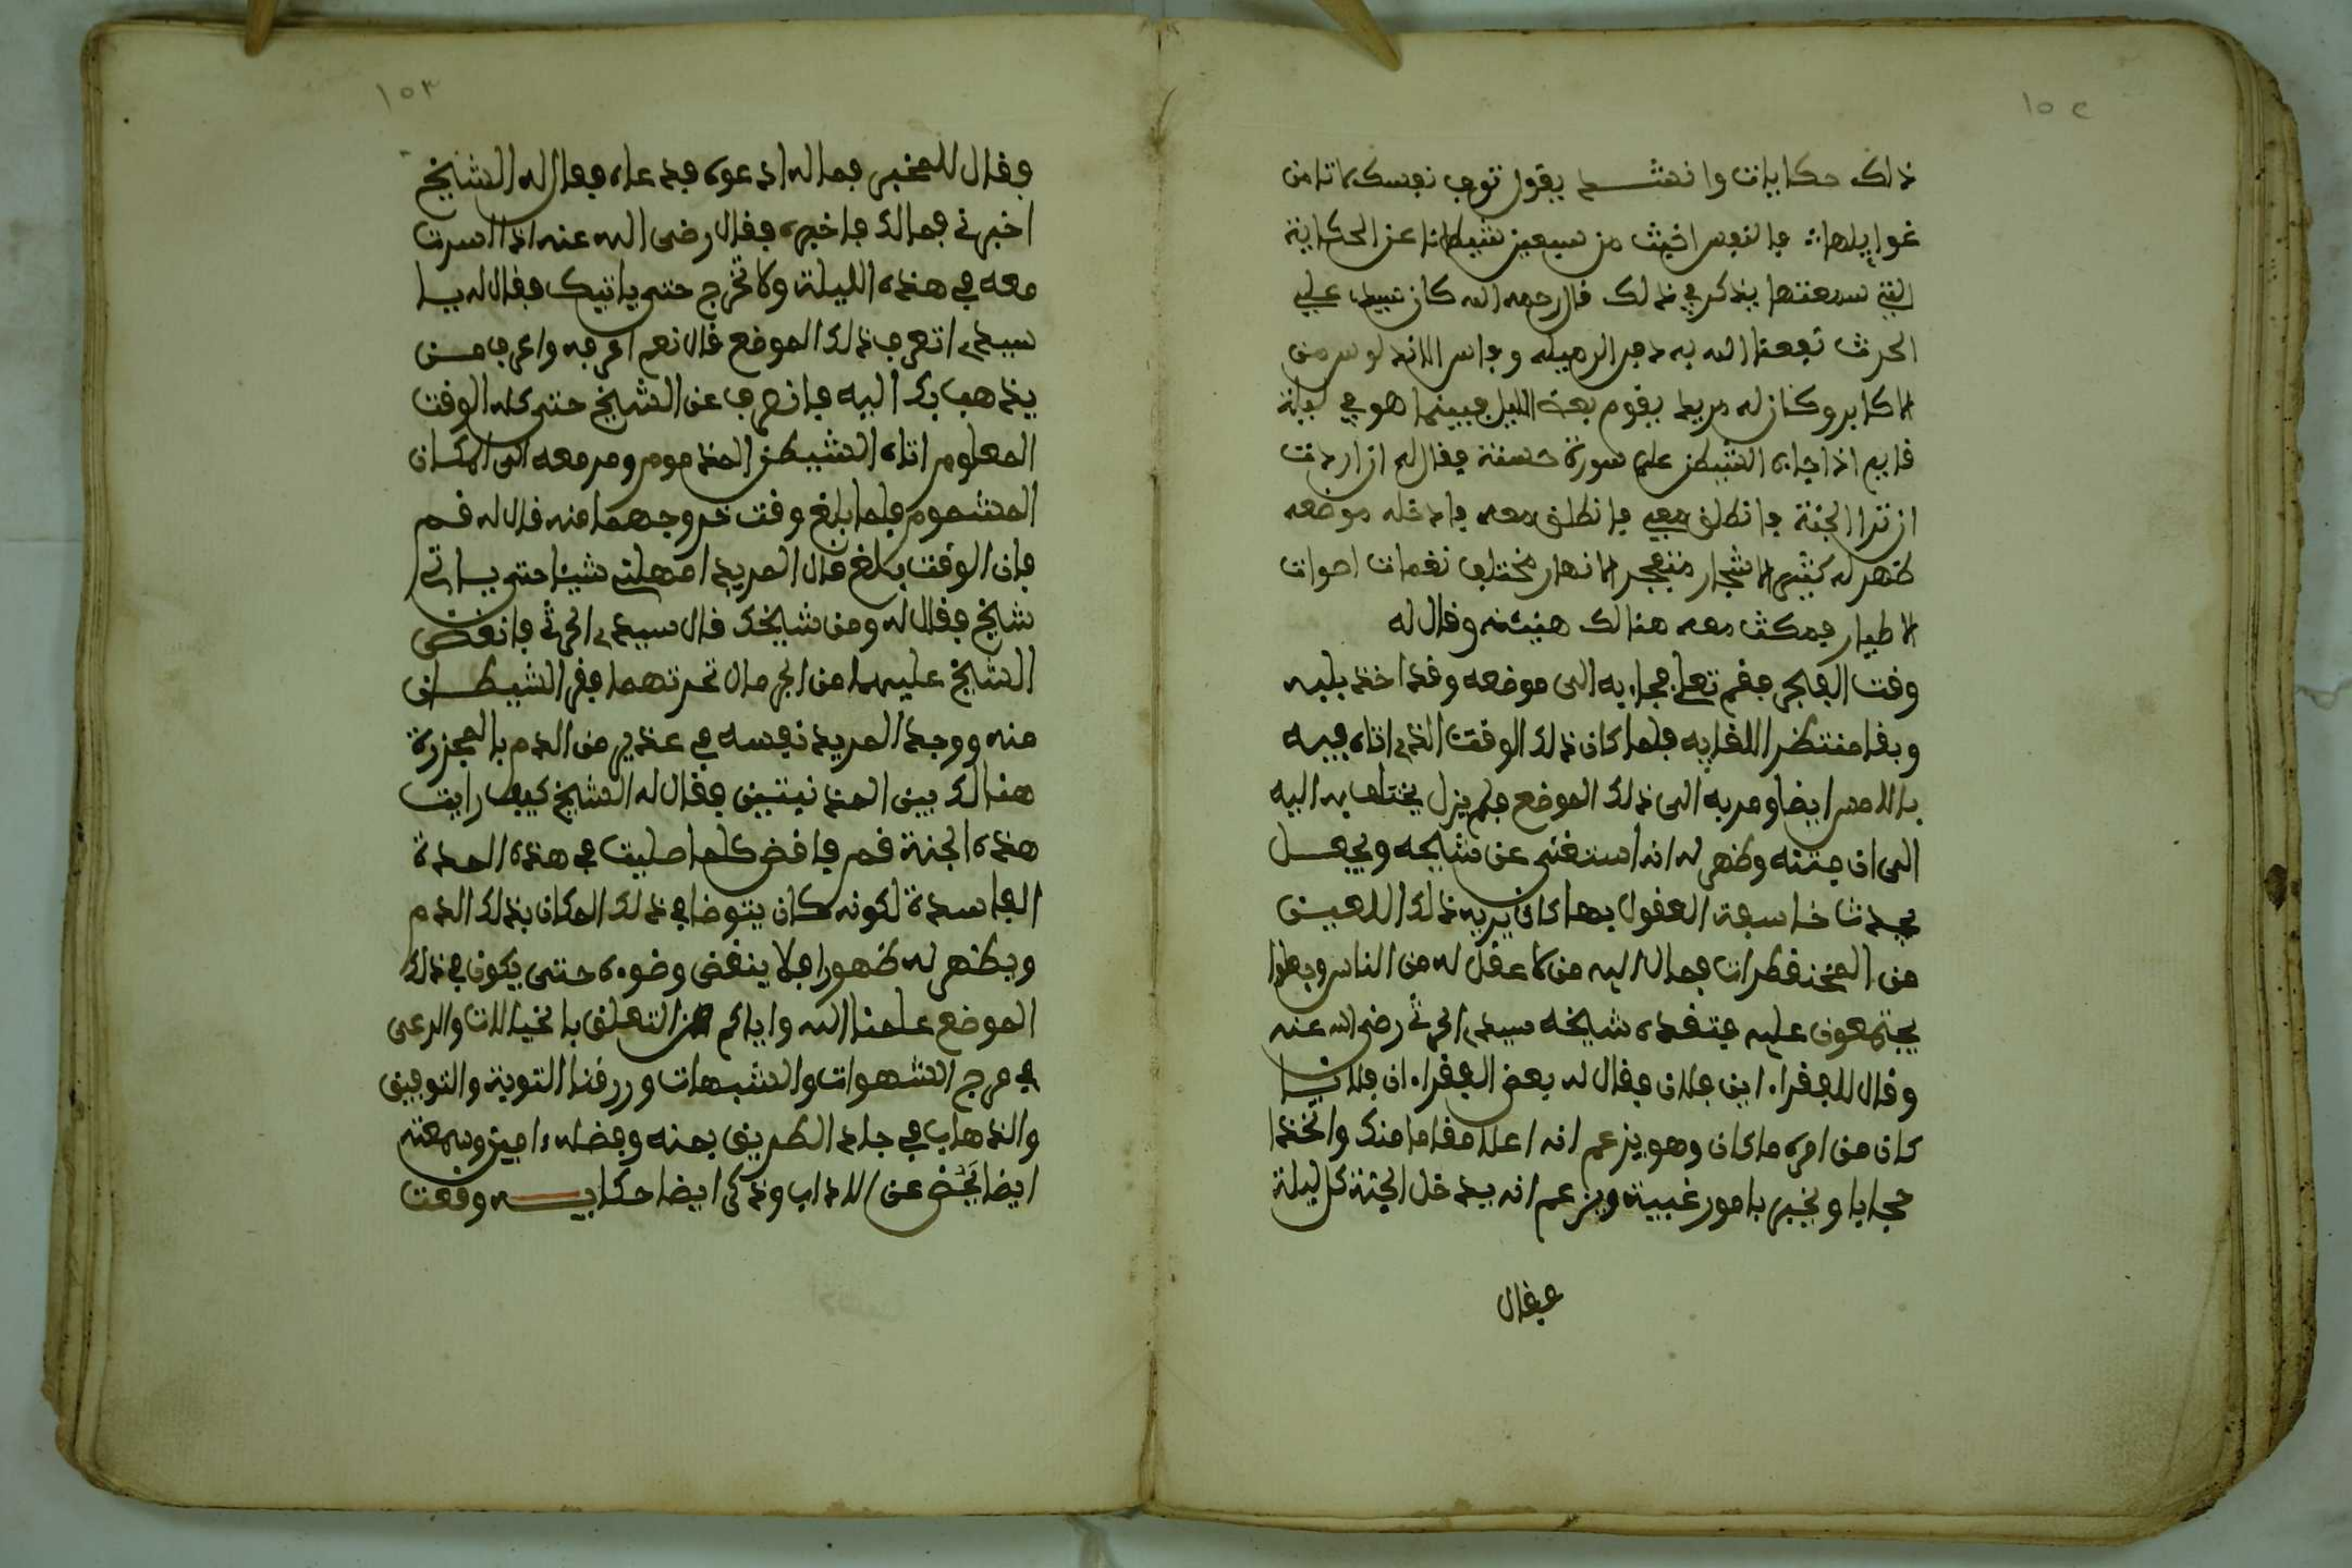 ١٥٢
ذلك حكايات وانشد يقول توق نفسك لا تامن
غوايلها فالنفس اخبث من سبعين شيطانا عن الحكاية
التي سمعتها يذكر في ذلك قال رحمه الله كان سيدي علي
الحرث نفعنا الله به دفين الرميلة وفاس الاندلوس من
الاكابر وكان له مريد يقوم بعض الليل فبينما هو في ليلة
قايم اذا جاءه الشيطن على صورة حسنة فقال له ان اردت
ان ترا الجنة فانطلق معي فانطلق معه فادخله موضعه
ظهر له كثير الاشجار منفجر الانهار مختلف نغمات اصوات
الاطيار فمكث معه هنالك هنيئة وقال له
وقت الفجر فقم تعلى فجاء به الى موضعه وقد اخذ بلبه
وبقا منتظر اللقايه فلما كان ذلك الوقت الذي اتاه فيه
بالامس ايضا ومر به الى ذلك الموضع فلم يزل يختلف به اليه
الى ان فتنه وظهر له انه استغنى عن شيخه ويجعل
يحدث خاسفة العقول بما كان يريه ذلك اللعين
من المخنقطرات فمال اليه من لا عقل له من الناس وبقوا
يجتمعون عليه فتفقده شيخه سيدي الحرث رضي الله عنه
وقال للفقراء اين فلان فقال له بعض الفقراء ان فلانا
كان من امره ما كان وهو يزعم انه اعلا مقاما منك واتخذ
حجابا ويخبر بامور غيبية ويزعم انه يدخل الجنة كل ليلة
فقال
١٥٣
وقال للمخبر فما له ادعوه فدعاه فقال له الشيخ
اخبرني فمالك فاخبره فقال رضي الله عنه اذا اسرت
معه في هذه الليلة ولا تخرج حتى ياتيك فقال له يا
سيدي اتعرف ذلك الموضع قال نعم اعرفه واعرف من
يذهب بك اليه فانصرف عن الشيخ حتى كان الوقت
المعلوم اتاه الشيطن المذموم ومر معه الى المكان
المشموم فلما بلغ وقت خروجهما منه قال له قم
فان الوقت بلغ قال المريد امهلني شيئا حتى ياتي
شيخ فقال له ومن شيخك قال سيدي الحرث فانقض
الشيخ عليهما من الجرمان تحرتهما ففر الشيطان
منه ووجد المريد نفسه في غدير من الدم بالمجزرة
هنالك بين المذنيتين فقال له الشيخ كيف رايت
هذه الجنة قم فاقض كلما صليت في هذه المدة
الفاسدة لكونه كان يتوضا في ذلك المكان بذلك الدم
ويظهر له طهورا فلا ينقض وضوءه حتى يكون في ذلك
الموضع علمنا الله واياكم من التعلق بالخيالات والرعى
في مرج الشهوات والشبهات ورزقنا التوبة والتوفيق
والذهاب في جادة الطريق بمنه وفضله ءامين وسمعته
ايضا يحض عن الاداب وذكر ايضا حكاية وقعت